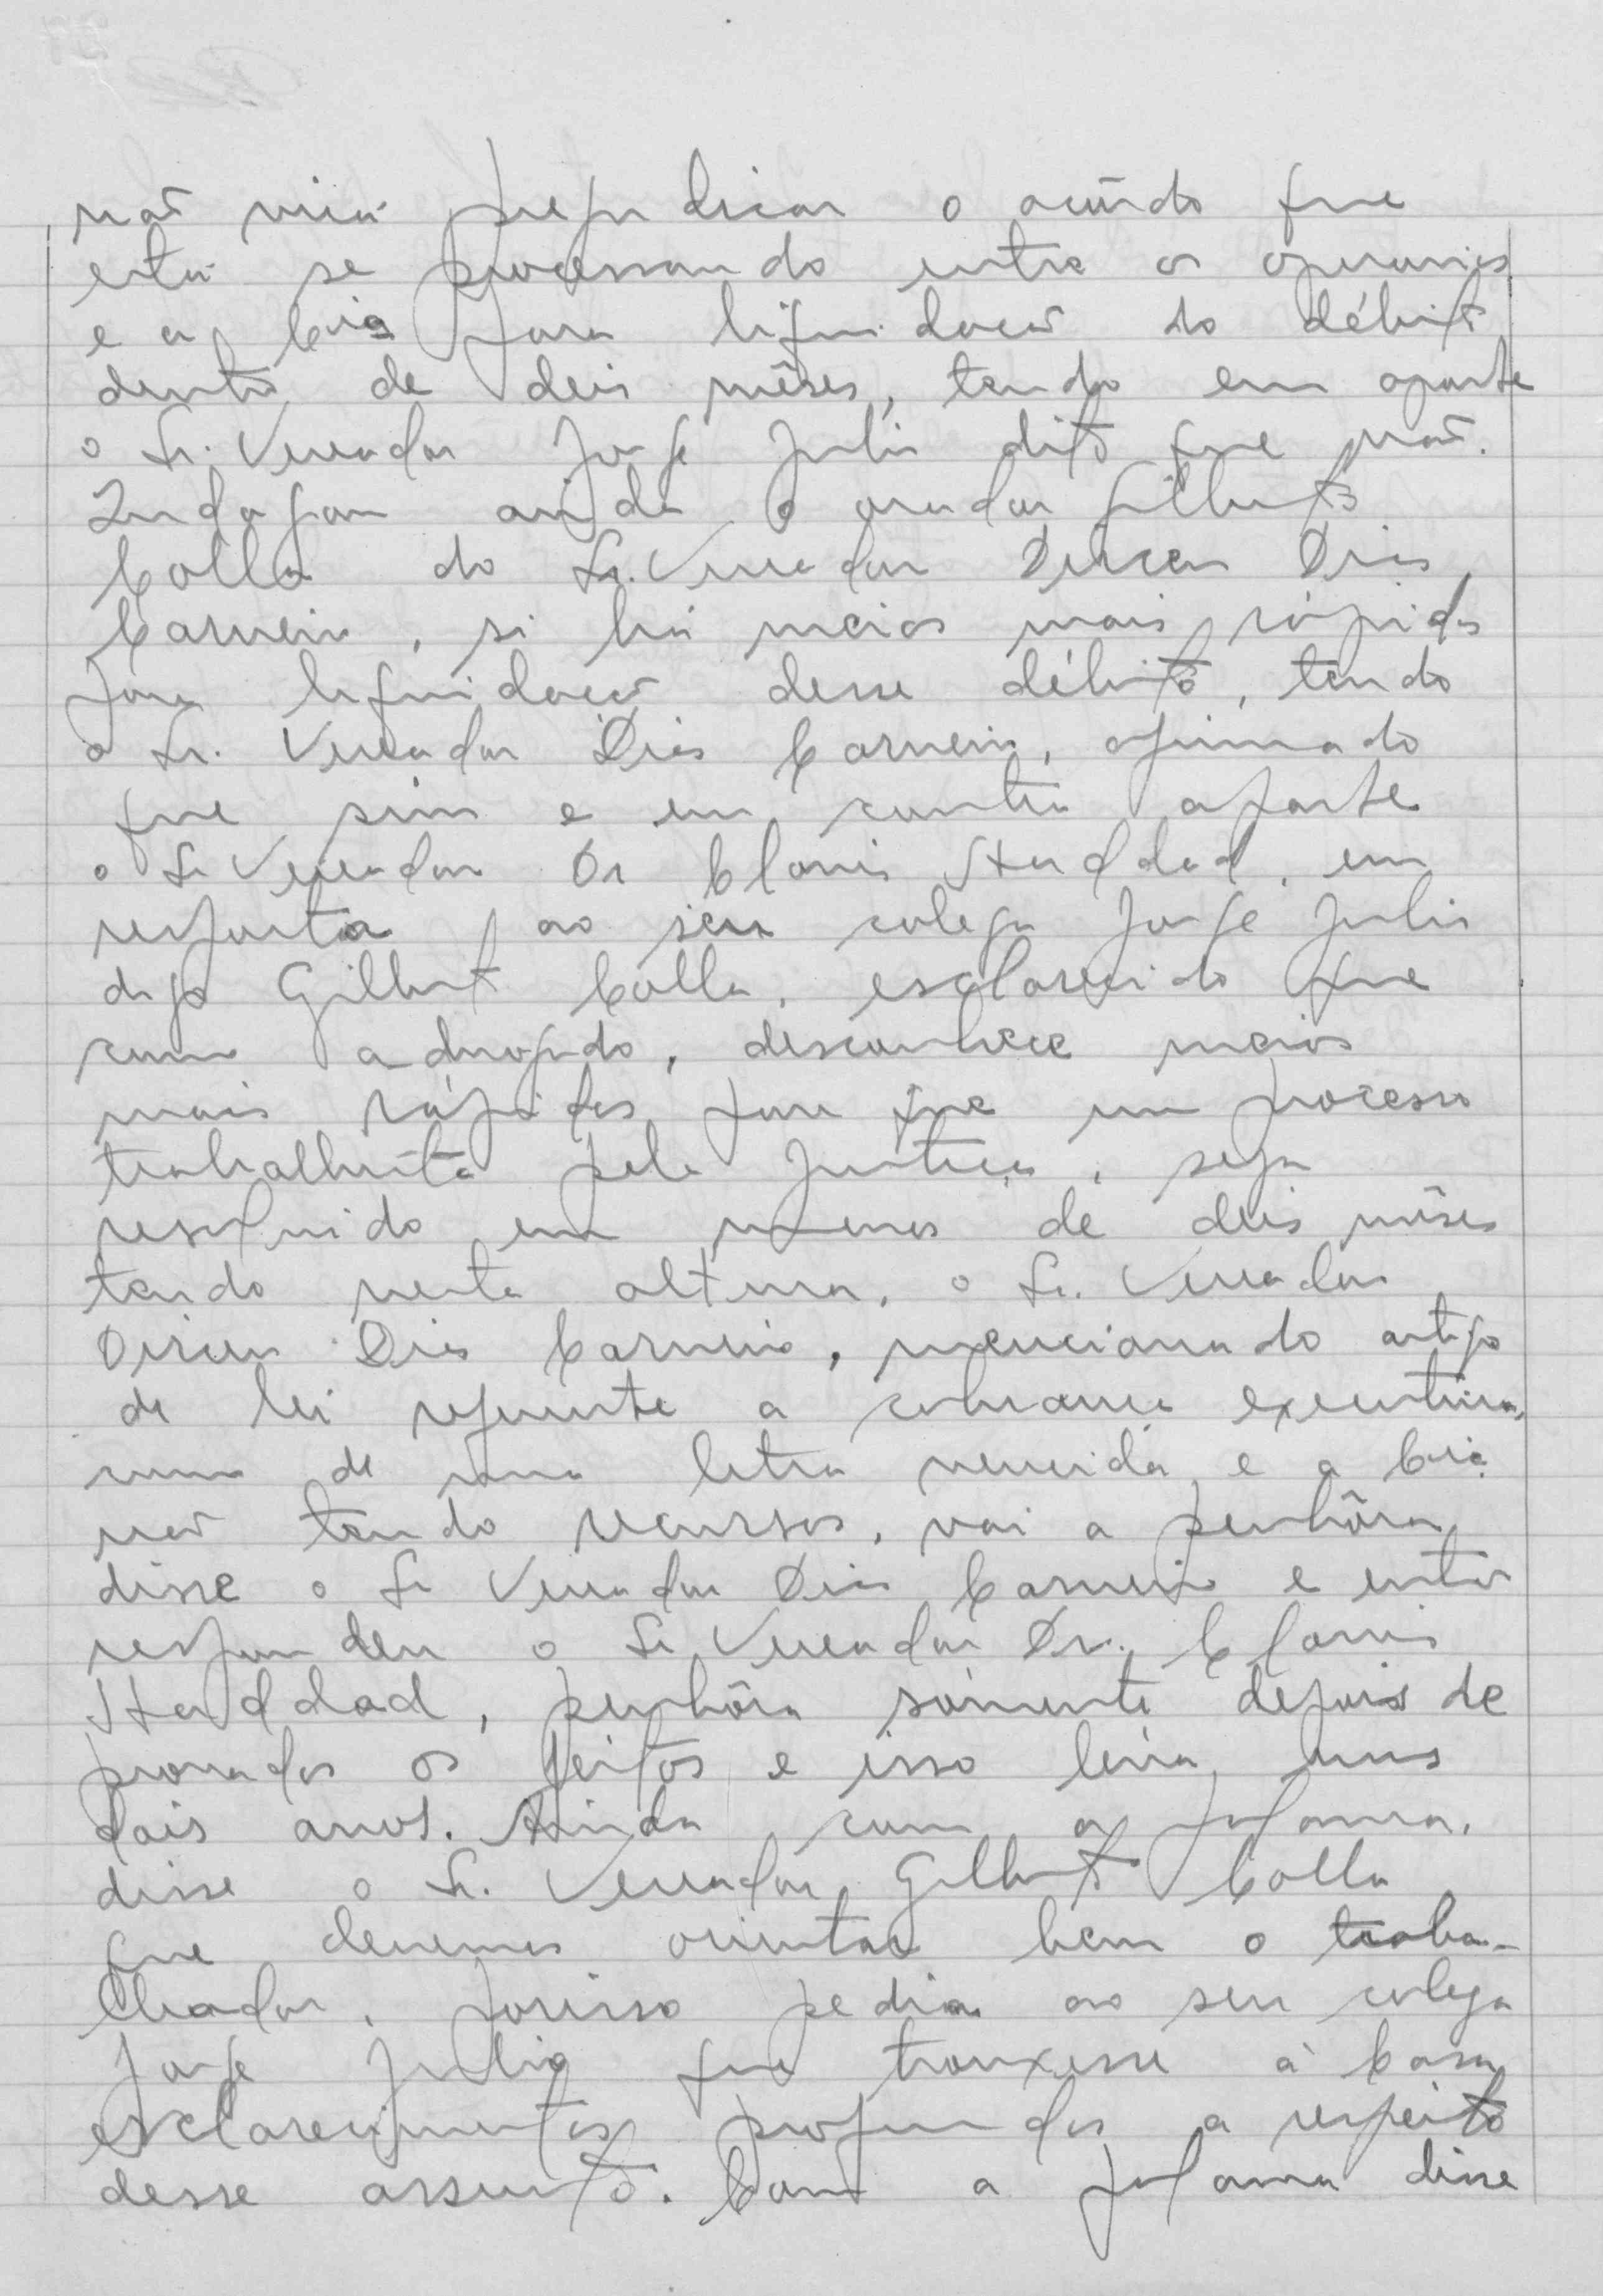 não viria prejudicar o acôrdo que
está se processando entre os operarios
e a Cia para liquidação do débito
dentro de deis mêses, tendo em aparte
o Sr. Vereador Jorge Julio dito que não.
Indagou ainda o orador Gilberto
Colla do Sr. Vereador Dirceu Dias
Carneiro, si há meios mais rápidos
para liquidação desse débito, tendo
o Sr. Vereador Dias Carneiro, afirmado
que sim e em contra aparte
o Sr Vereador Dr Clovis Haddad, em
resposta ao seu colega Jorge Julio
digo Gilberto Colla, esclarecido que
como advogado, desconhece meios
mais rápidos para que um processo
trabalhista pela Justiça, seja
resolvido em menos de deis mêses
tendo nesta altura, o Sr. Vereador
Dirceu Dias Carneiro, mencionado artigo
de lei referente a cobrança executiva,
como de uma letra vencida e a Cia
não tendo recursos, vai a penhôra
disse o Sr Vereador Dias Carneiro e então
respondeu o Sr Vereador Dr. Clovis
Haddad, penhôra sómente depois de
provados os feitos e isso leva uns
dois anos. Ainda com a palavra,
disse o Sr. Vereador Gilberto Colla
que devemos orientar bem o traba-
lhador, porisso pedia ao seu colega
Jorge Julio que trouxesse à Casa
esclarecimentos profundos a respeito
desse assunto. Com a palavra disse